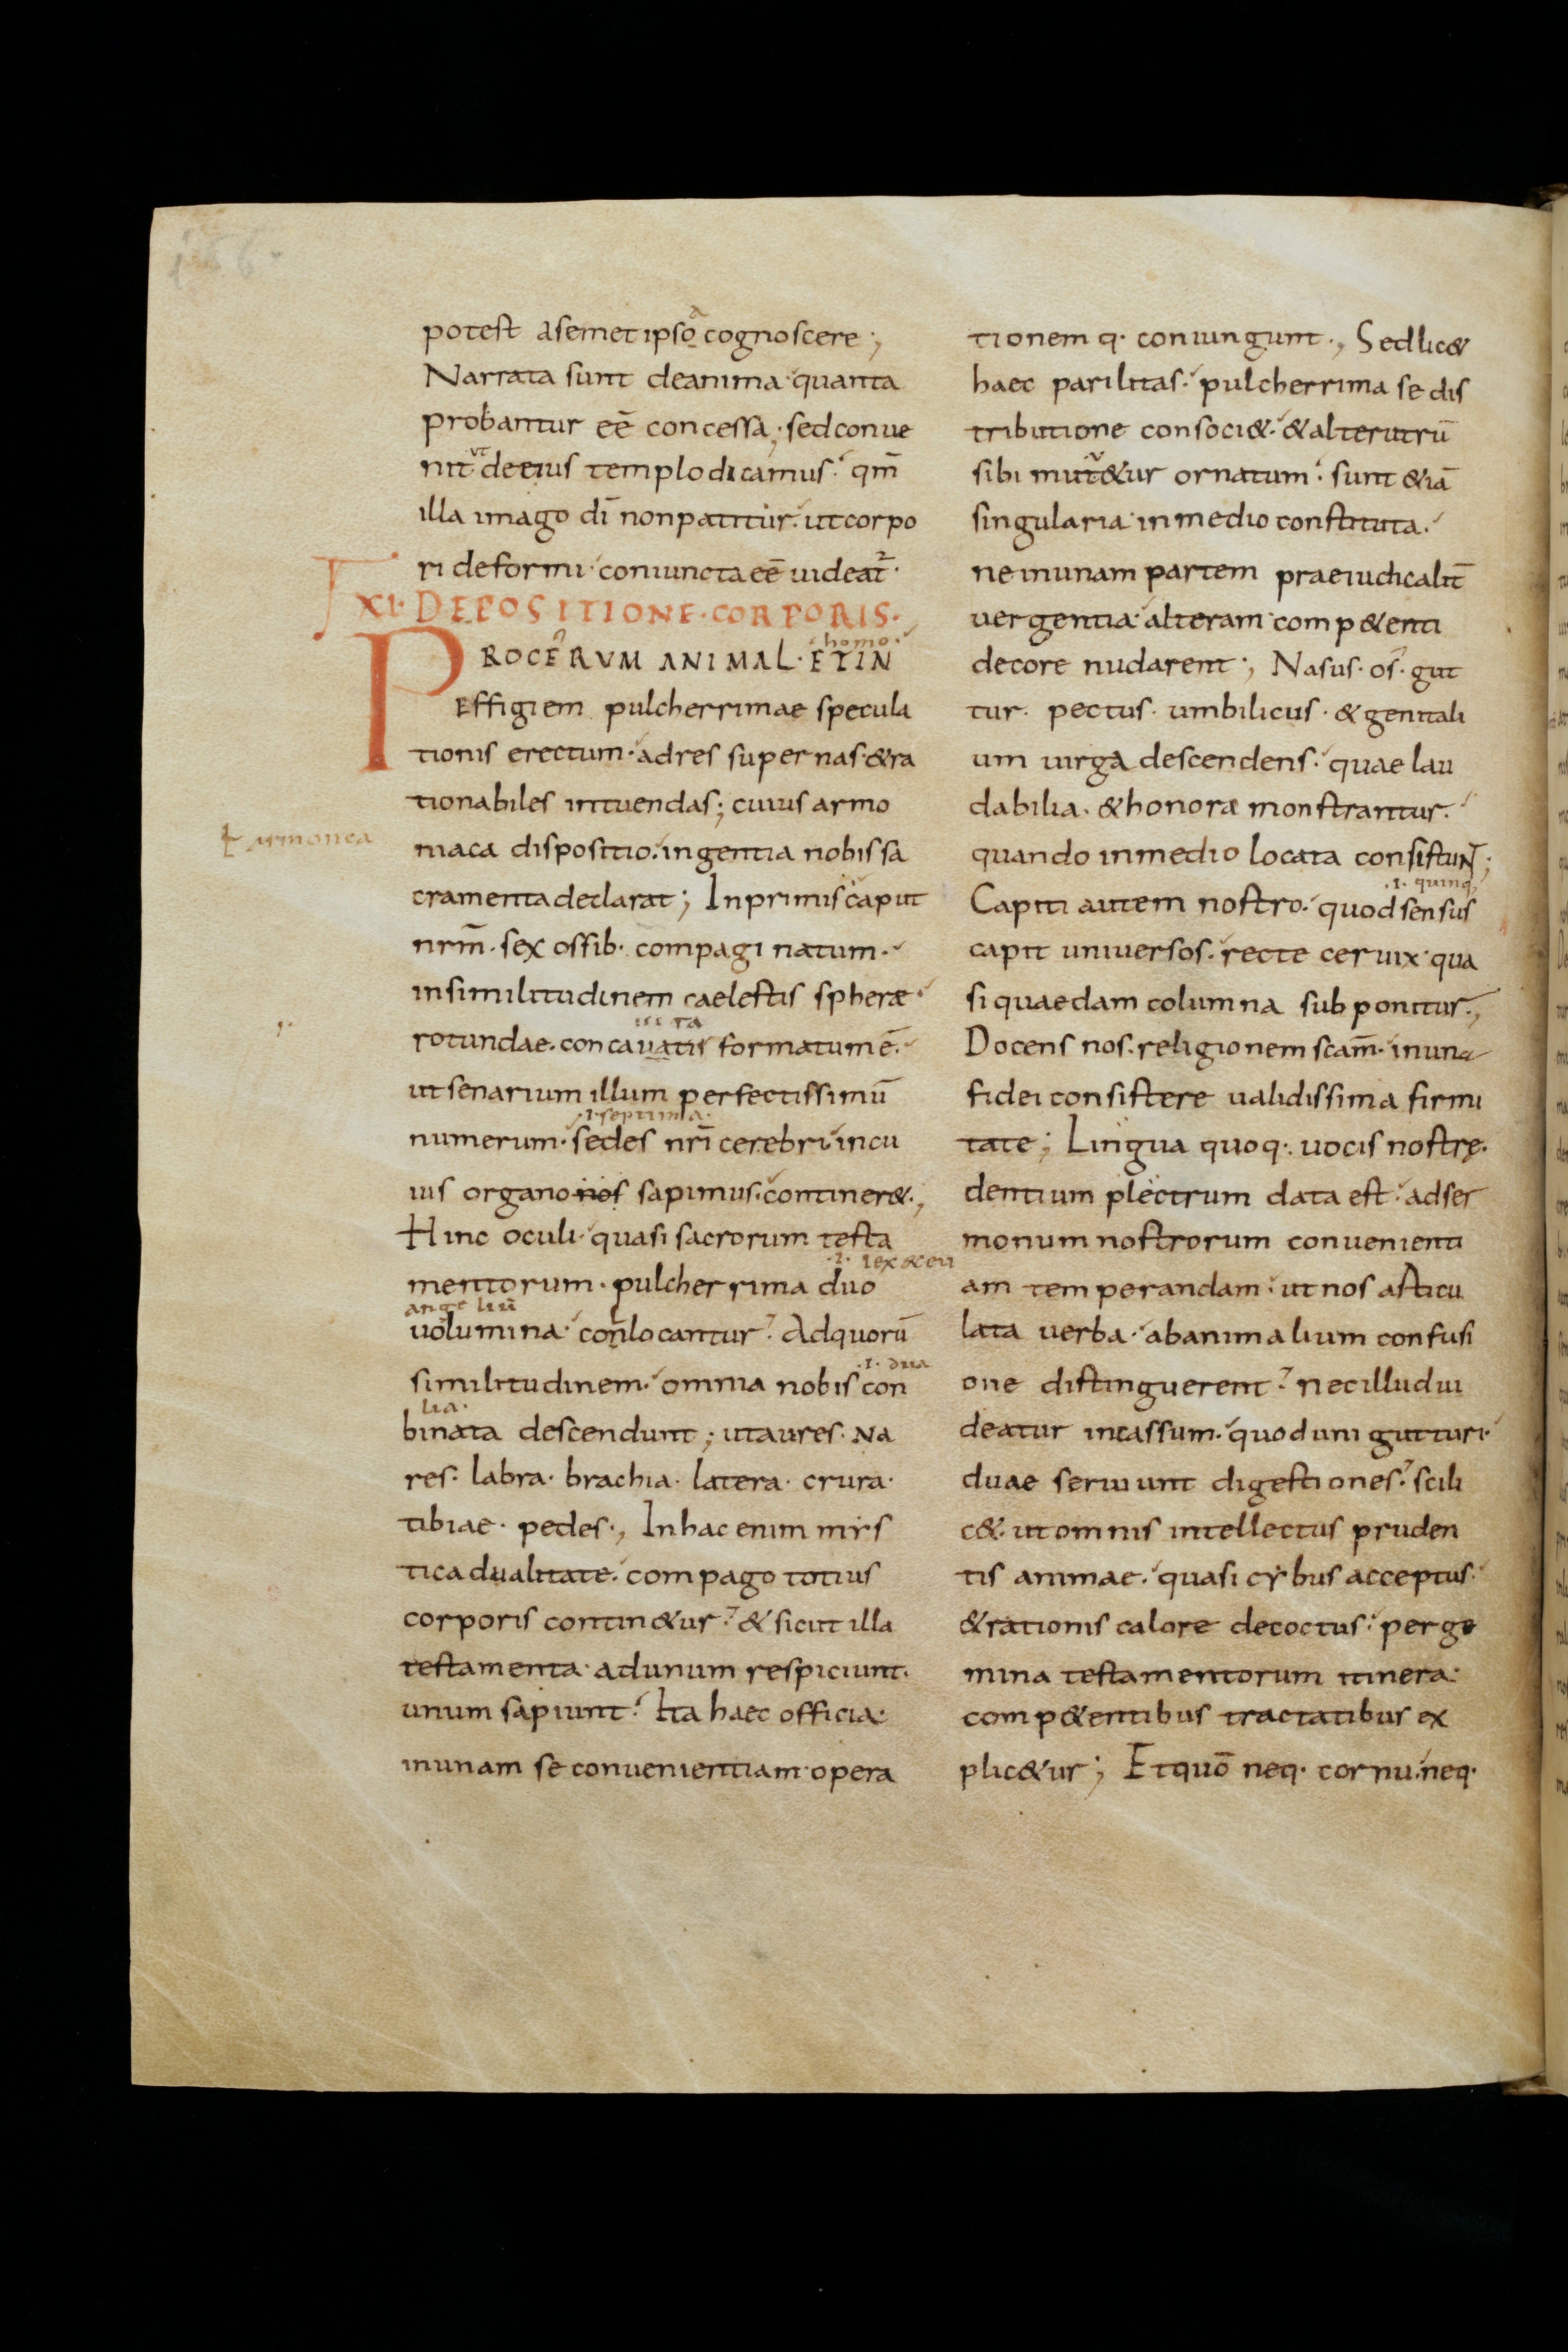 156.
potest asemet ipso cognoscere;
a
Narrata sunt deanima quanta
probantur eē concessa; sed conue
nit deeius templo dicamus. qm̄
ut
illa imago dī non patitur. ut corpo
ri deformi coniuncta eē uideat᷑.
XI. DEPOSITIONE CORPORIS.
homo
PROCERUM ANIMAL. ET IN
Effigiem pulcherrimae specula
tionis erectum. adres supernas. & ra
tionabiles intuendas; cuius armo
niaca dispositio. ingentia nobis sa
ł armonica
cramenta declarat; Inprimis caput
nrm̄. sex ossib. compaginatum.
insimilitudinem caelestis spherae
rotundae. concauatis formatum ē.
ut senarium illum perfectissimū
.i. septima.
numerum. sedes nrī cerebri incu
ius organo nos sapimus. contineret.,
Hinc oculi. quasi sacrorum testa
mentorum. pulcherrima duo
.i. lex & eu
angeliū
uolumina. conlocantur. Adquorū
similitudinem. omnia nobis con
.i. dua
lia.
binata descendunt; ut aures. Na
res. labra. brachia. latera. crura.
tibiae. pedes., Inhac enim mis
tica dualitate. compago totius
corporis contin&ur. & sicut illa
testamenta adunum respiciunt.
unum sapiunt. Ita haec officia
inunam se conuenientiam opera
tionem q. coniungunt., Sed lic&
haec parilitas. pulcherrima se dis
tributione consoci&. & alterutrū
sibi mut&ur ornatum. sunt &iā
singularia inmedio constituta.
ne inunam partem praeiudicalit̄
uergentia alteram comp&enti
decore nudarent; Nasus. os. gut
tur. pectus. umbilicus. & genitali
um uirga descendens. quae lau
dabilia. & honora monstrantur.
quando inmedio locata consistunt;
.i. quinq;
Capiti autem nostro. quod sensus
capit uniuersos. recte ceruix qua
si quaedam columna subponitur.,
Docens nos. religionem scam̄. inuna
fidei consistere ualidissima firmi
tate; Lingua quoq. uocis nostrę.
dentium plectrum data est. adser
monum nostrorum conuenienti
am temperandam. ut nos articu
lata uerba. abanimalium confusi
one distinguerent. nec illud ui
deatur incassum. quod uni gutturi.
duae seruiunt digestiones. scili
c&. ut omnis intellectus pruden
tis animae. quasi cybus acceptus
& rationis calore decoctus. per ge
mina testamentorum itinera
comp&entibus tractatibus ex
plic&ur; Et quō neq. cornu. neq.